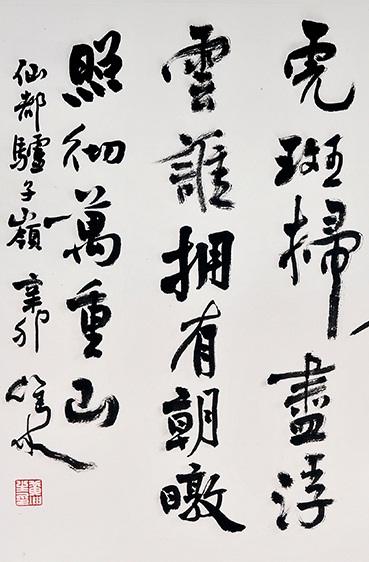 虎斑掃盡浮
雲誰擁有朝暾
照彻萬重山
仙都驢子嶺 辛卯